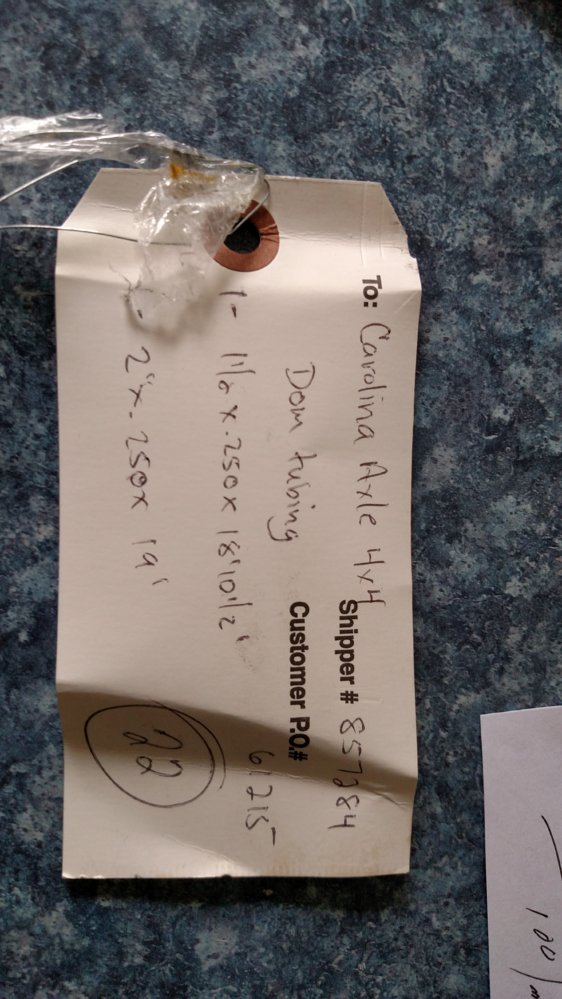 To: Carolina Axle 4x4
Shipper # 857284
Dom tubing
Customer P.O.# 61215
1- 1 1/2 x .250 x 18' 10 1/2"
2" x .250 x 19'
22
100